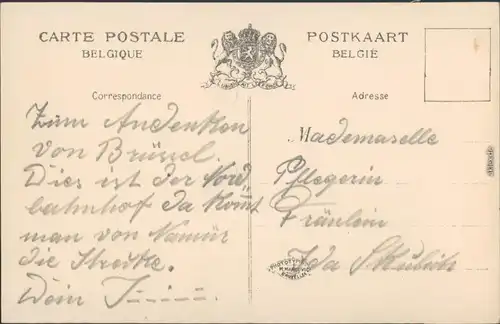 CARTE POSTALE
BELGIQUE
POSTKAART
BELGIË
Correspondance
Adresse
Zum Andenken
von Brüssel.
Dies ist der Nord
bahnhof da kommt
man von Namür
die Strecke.
Dein F
Mademaselle
Pflegerin
Fräulein
Ida